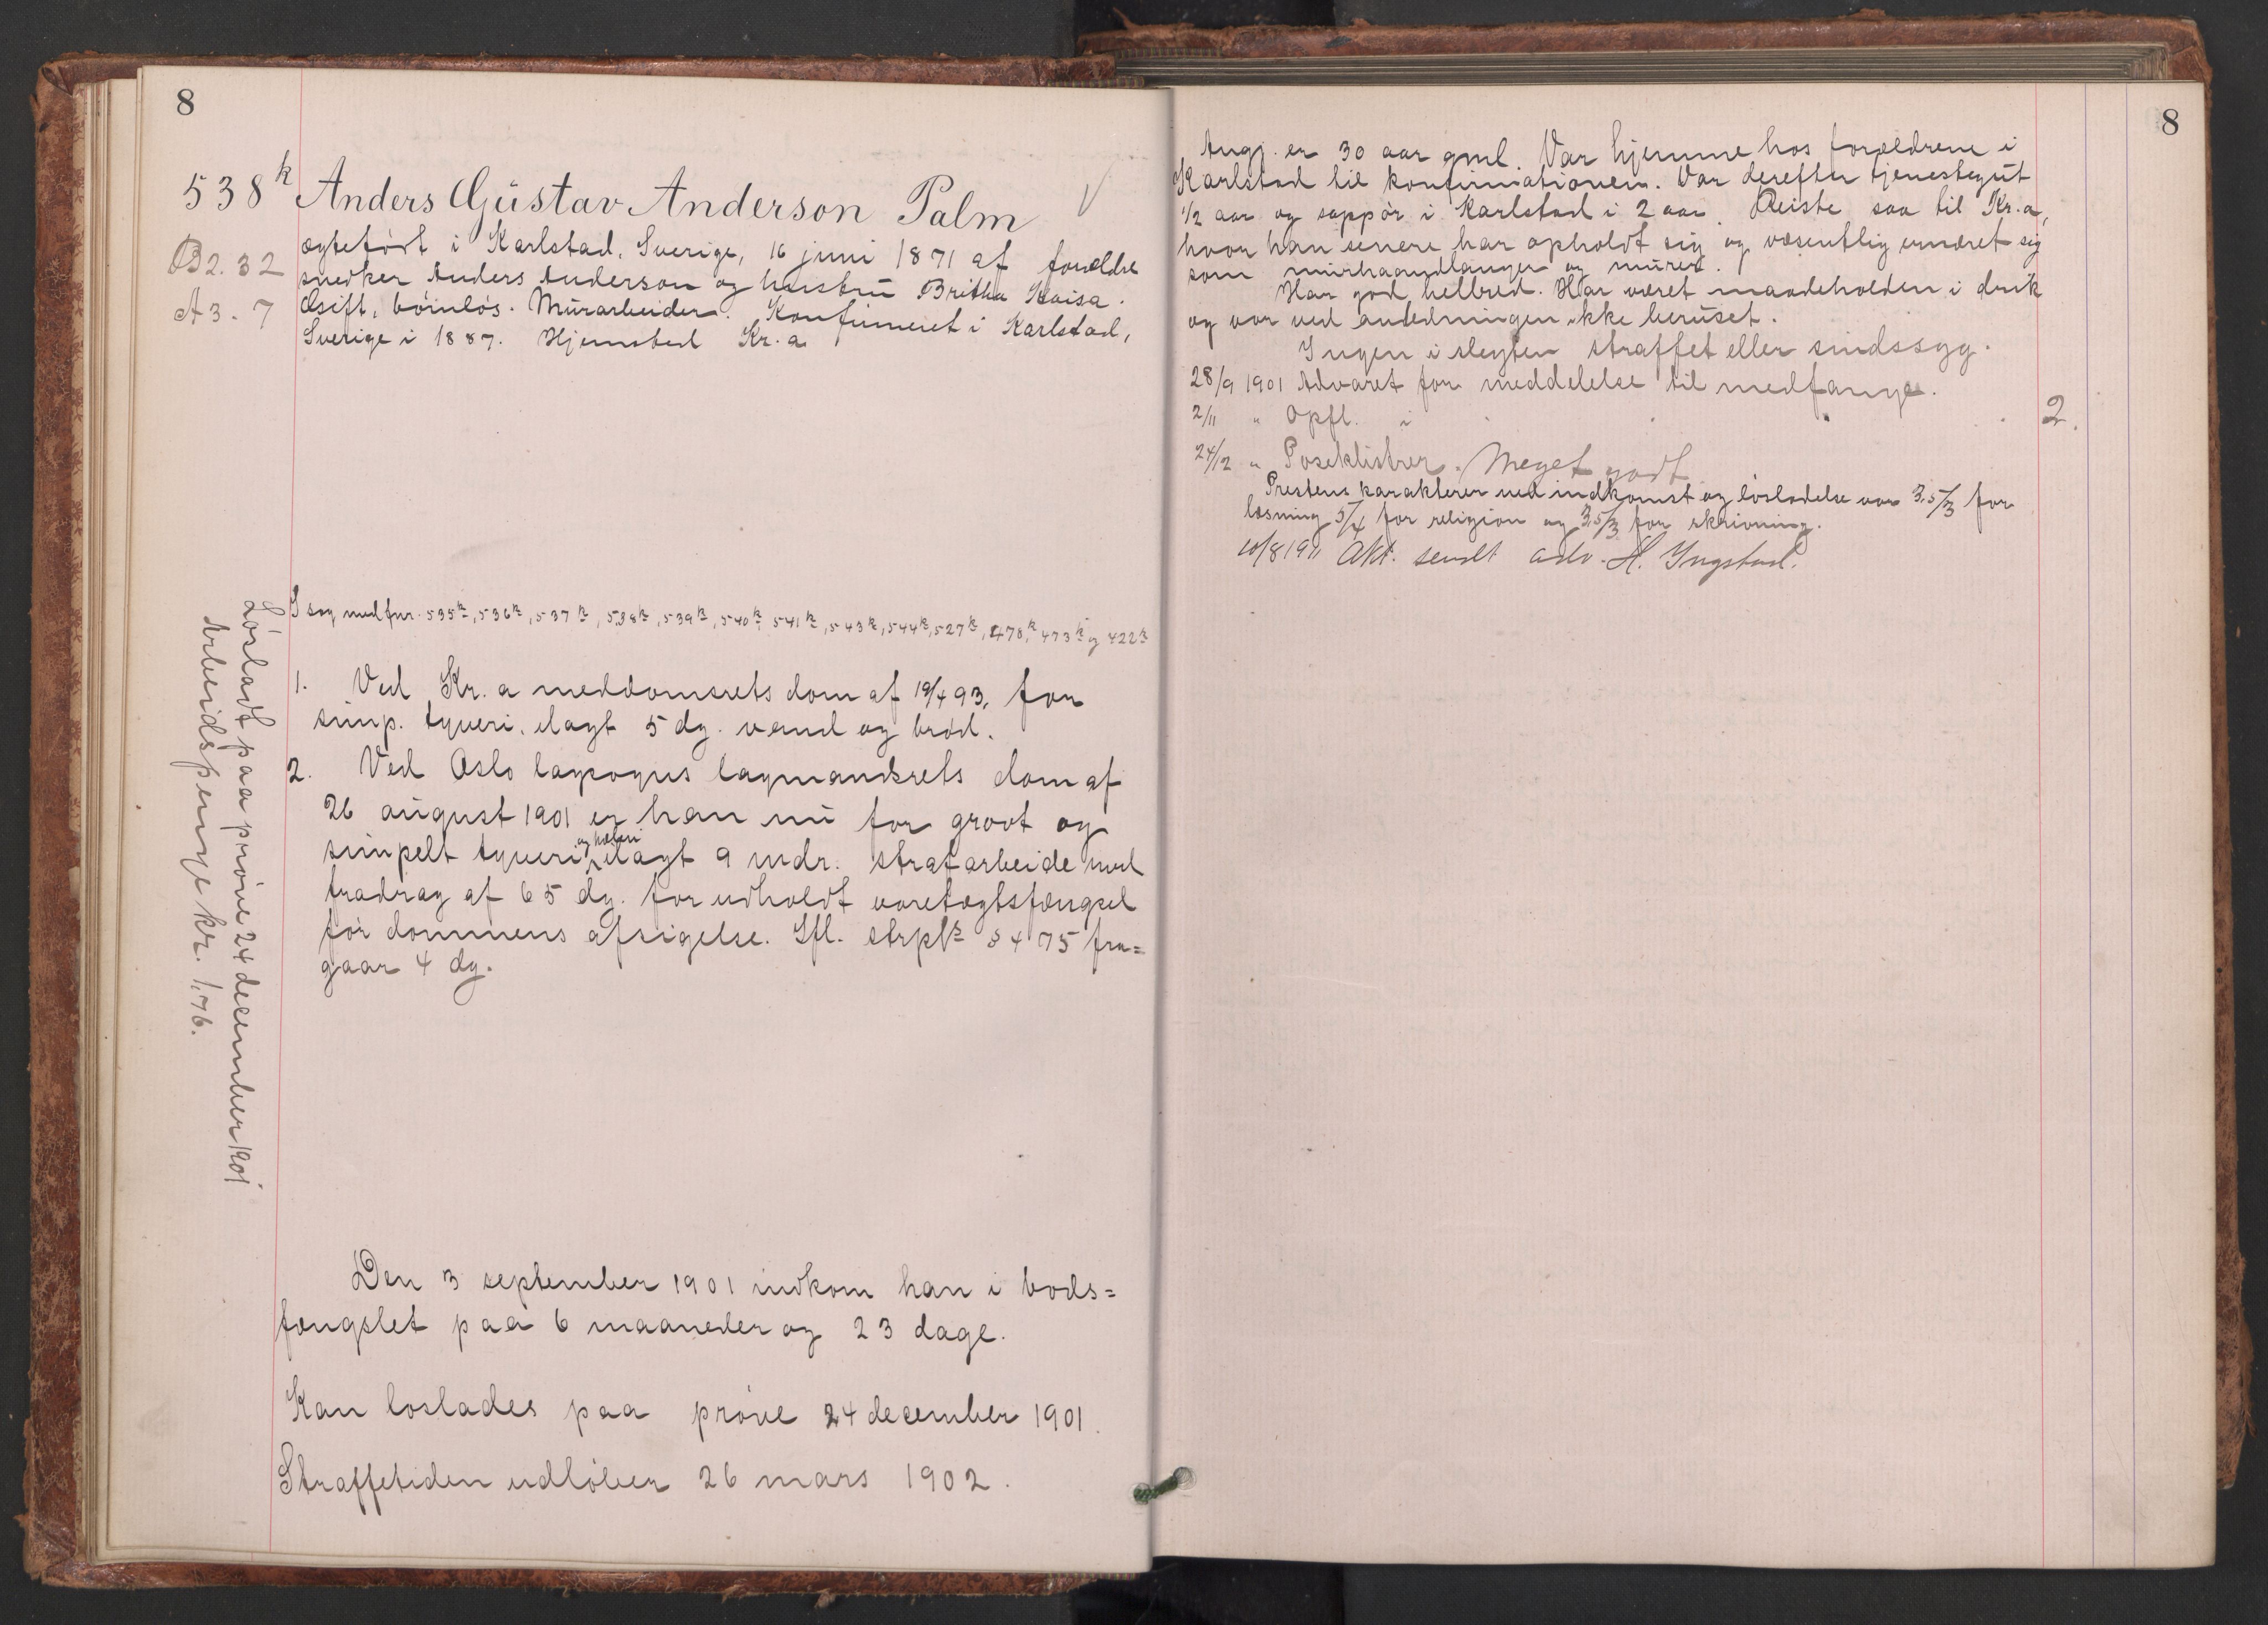 8
538k Anders Gustav Anderson Palm
B2.32
A3.7
ægtefødt i Karlstad, Sverige, 16 juni 1871 af forældre
snedker Anders Anderson og hustru Britha Kaisa.
Gift, børnløs. Murarbeider. Konfirmeret i Karlstad,
Sverige i 1887. Hjemsted Kr.a
I sag med fnr. 535k, 536k, 537k, 538k, 539k, 540k, 541k, 543k, 544k, 527k, 478k, 473k og 422k
1. Ved Kr.a meddomsrets dom af 19/4 93, for
simp. tyveri, ilagt 5 dg. vand og brød.
2. Ved Oslo lagsogns lagmandsrets dom af
26 august 1901 er han nu for grovt og
simpelt tyveri og hæleri ilagt 9 mdr. strafarbeide med
fradrag af 65 dg. for udholdt varetægtsfængsel
før dommens afsigelse. Ifl. strpl § 475 fra=
gaar 4 dg.
Den 3 september 1901 indkom han i bods=
fængslet paa 6 maaneder og 23 dage.
Kan løslades paa prøve 24 december 1901.
Straffetiden udløber 26 mars 1902.
Løsladt paa prøve 24 december 1901
Arbeidspenge kr. 1,76.
8
Angj. er 30 aar gml. Var hjemme hos forældrene i
Karlstad til konfirmationen. Var derefter tjenestegut
1/2 aar og soppør i Karlstad i 2 aar. Reiste saa til Kr.a,
hvor han senere har opholdt sig og væsentlig ernæret sig
som murhaandlanger og murer.
Har god helbred. Har været maadeholden i drik
og var ved anledningen ikke beruset.
Ingen i slegten straffet eller sindssyg.
28/9 1901 Advaret for meddelelse til medfange.
2/11 " Opfl. i 2.
24/12 " Poseklistrer. Meget godt
Prestens karakterer ved indkomst og løsladelse var 3,5/3 for
læsning 5/4 for religion og 3,5/3 for skrivning.
10/8 1911 Akt. sendt adv. H. Ingstad.